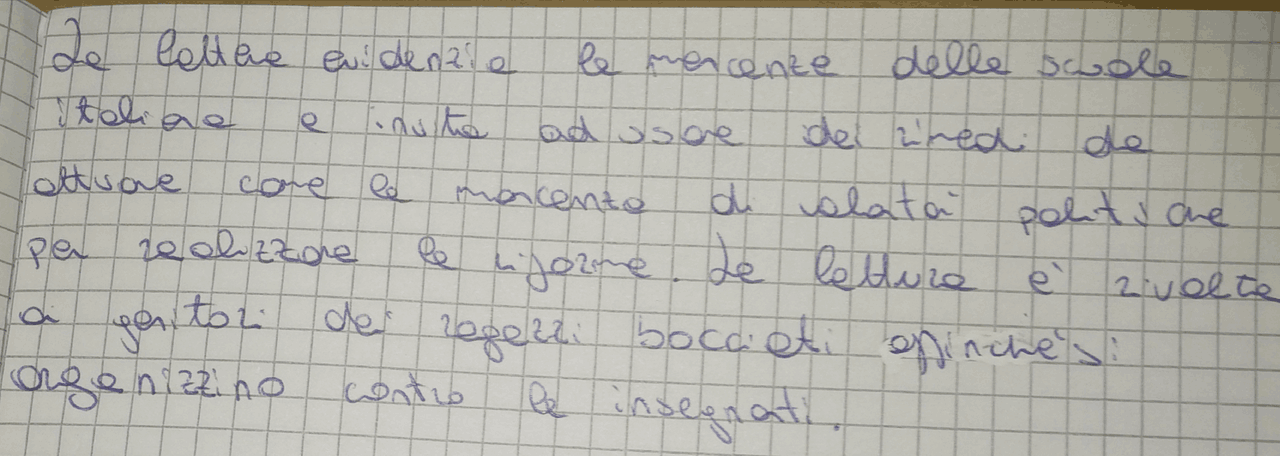 La lettere evidenzia le mancanze delle scuole
italiane e invita ad usare dei rimedi da
attuare come la mancanta di volatà politicare
per realizzare le riforme. La lettura è rivolta
ai genitori dei ragazzi bocciati affinchè si
organizzino contro le insegnati.